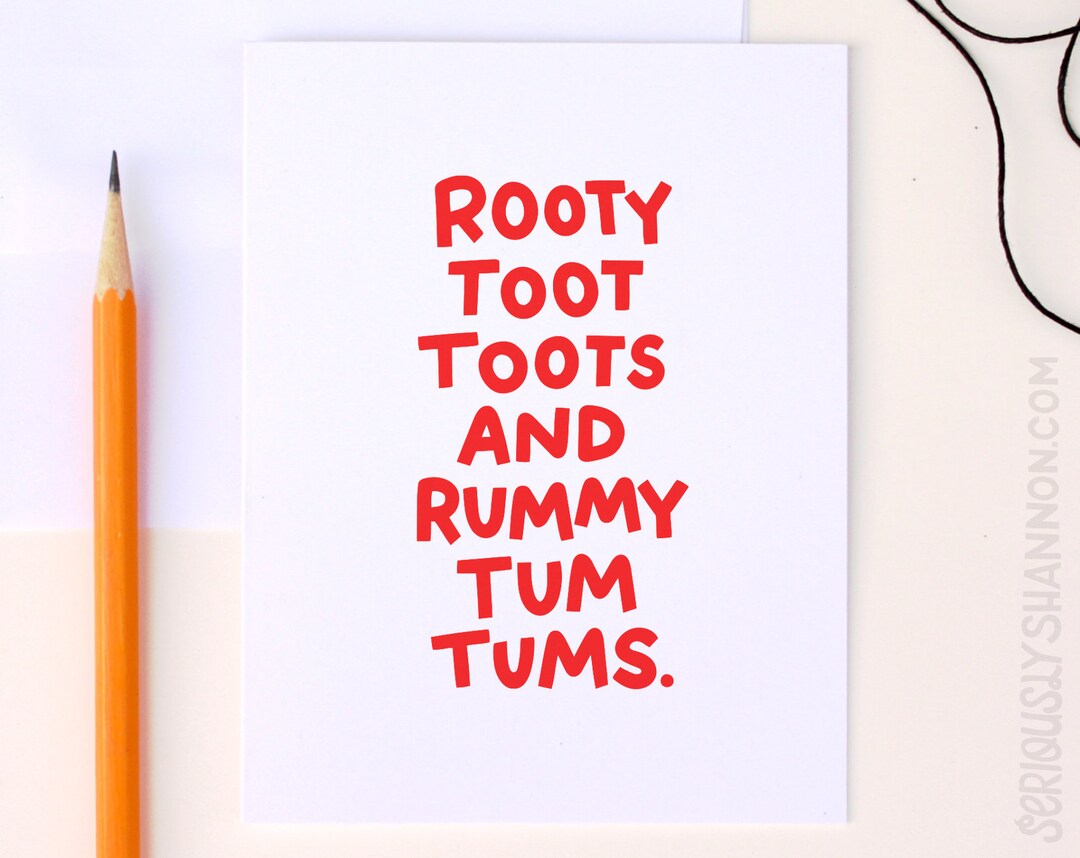 ROOTY
TOOT
TOOTS
AND
RUMMY
TUM
TUMS.
SERIOUSLYSHANNON.COM